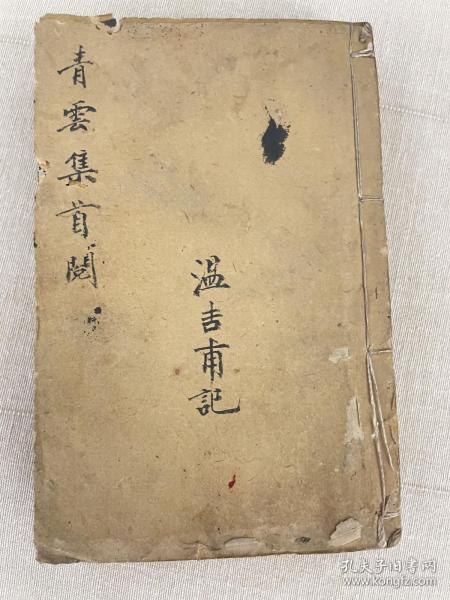 青雲集首閱
溫吉甫記
孔夫子旧书网
www.kongfz.com